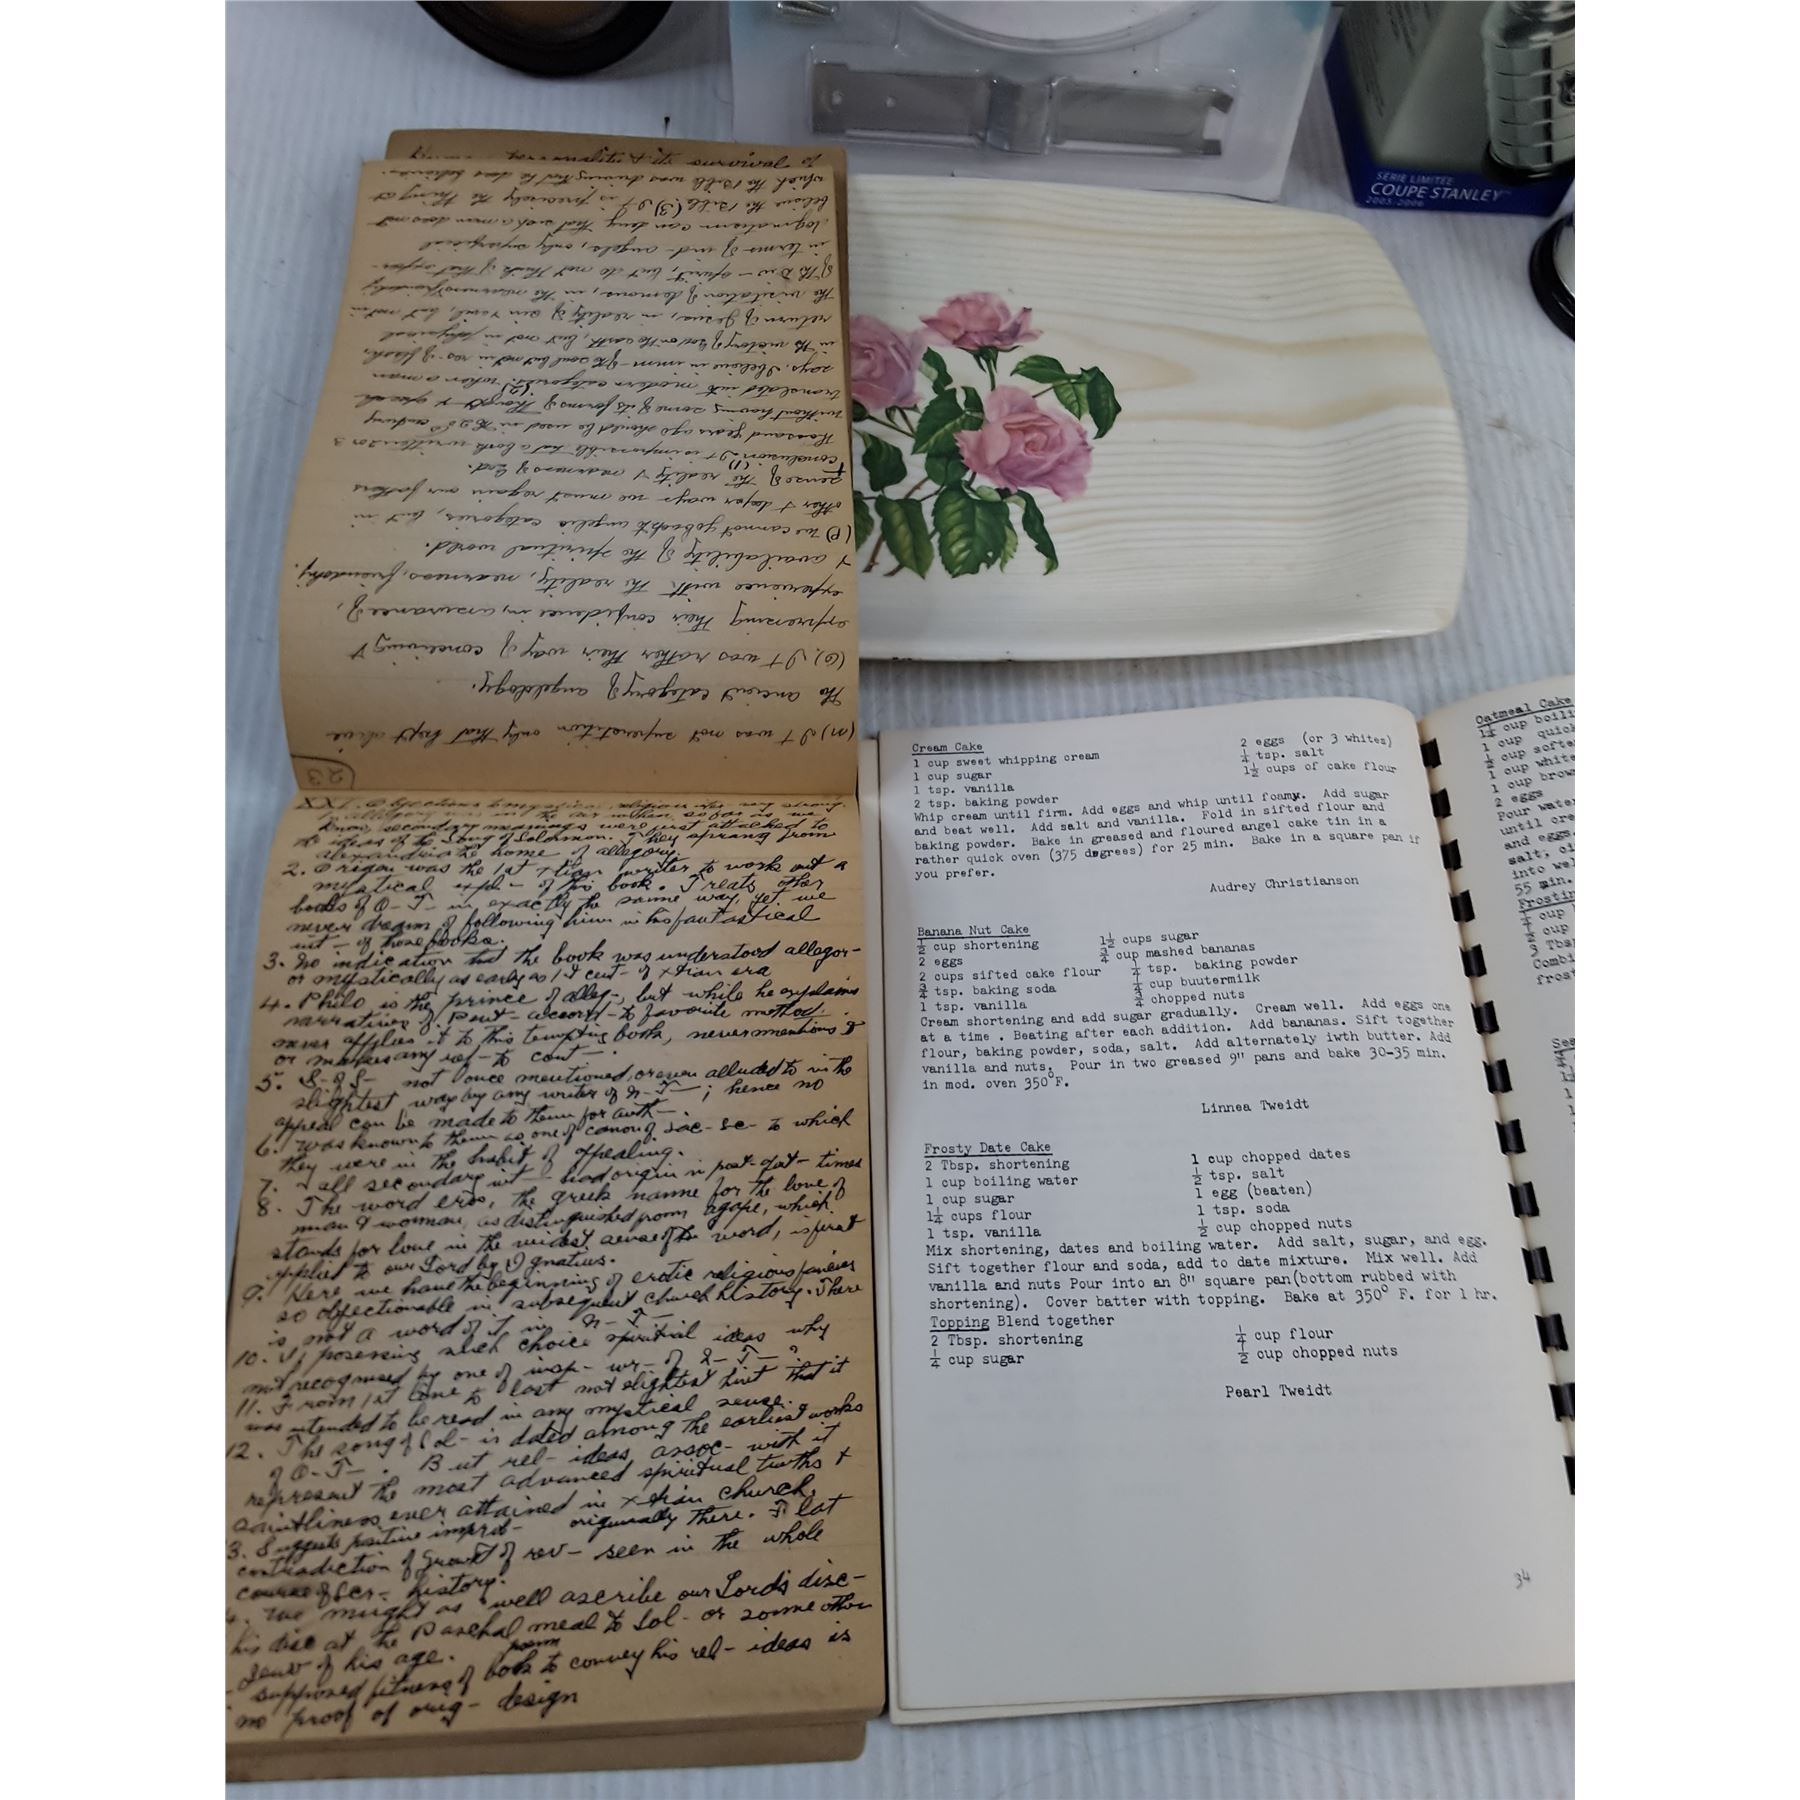 SÉRIE LIMITÉE
COUPE STANLEY
2005-2006
which the Bible was driving that he does believe.
believe the Bible. (3) It is precisely the thing at
logmatism can deny that such a man does not
in terms of ind- angels, only superficial
of the Div- spirit, but do not think of that
the visitation of demons, in the nearness & friendship
return of Jesus, in reality of sin & evil, but not in
in the victory of God on the earth, but not in physical
says, I believe in imm- of the soul but not in res- of flesh,
translated into modern categories. (2) When a man
without having some of its forms of thought & speech
thousand years ago should be used in the 20th century
conclusion. It is impossible that a book written 2 or 3
sense of the (1) reality & nearness of God.
other & deeper ways we must regain our fathers
(P) We cannot go back to angelic categories, but in
& availability of the spiritual world.
experience with the reality, nearness, friendship,
expressing their confidence in, assurance of,
(O) It was rather their way of conceiving &
the ancient category of angelology.
(N) It was not superstition only that kept alive
23
XXI. Objections
know, secondary meanings were first attached to
the ideas of the Song of Solomon. They sprang from
Alexandria the home of allegory.
2. Origen was the 1st Xtian writer to work out a
mystical expl- of this book. Treats other
books of O-T- in exactly the same way, yet we
never dream of following him in his fantastical
int- of those books.
3. No indication that the book was understood allegor-
or mystically as early as 1st cent- of Xtian era
4. Philo is the prince of alleg-, but while he explains
narratives of Pent- accord- to favorite method,
never applies it to this tempting book, never mentions it
or makes any ref- to cont-.
5. S-of S- not once mentioned, or even alluded to in the
slightest way by any writer of N-T-; hence no
appeal can be made to them for auth-.
6. Was known to them as one of canon of sac- Sc- to which
they were in the habit of appealing.
7. All secondary int- had origin in post-apst- times
8. The word eros, the Greek name for the love of
man & woman, as distinguished from agape, which
stands for love in the widest sense of the word, is first
applied to our Lord by Ignatius.
9. Here we have the beginning of erotic religious fancies
so objectionable in subsequent church history. There
is not a word of it in N-T-
10. If possessing such choice spiritual ideas why
not recognised by one of insp- wr- of N-T-?
11. From 1st line to last not slightest hint that it
was intended to be read in any mystical sense.
12. The song of Sol- is dated among the earliest works
of O-T-. But rel- ideas assoc- with it
represent the most advanced spiritual truths &
saintliness ever attained in Xtian church.
3. Suggests positive improb- originally there. Flat
contradiction of growth of rev- seen in the whole
course of Scr- history.
4. We might as well ascribe our Lord's disc-
his disc at the Paschal meal to Sol- or some other
Jew of his age.
supposed fitness of book poem to convey his rel- ideas is
no proof of orig- design
Cream Cake
1 cup sweet whipping cream 2 eggs (or 3 whites)
1 cup sugar ¼ tsp. salt
1 tsp. vanilla 1½ cups of cake flour
2 tsp. baking powder
Whip cream until firm. Add eggs and whip until foamy. Add sugar
and beat well. Add salt and vanilla. Fold in sifted flour and
baking powder. Bake in greased and floured angel cake tin in a
rather quick oven (375 degrees) for 25 min. Bake in a square pan if
you prefer.
Audrey Christianson
Banana Nut Cake
½ cup shortening 1½ cups sugar
2 eggs ¾ cup mashed bananas
2 cups sifted cake flour ¼ tsp. baking powder
¾ tsp. baking soda ¼ cup buutermilk
1 tsp. vanilla ¾ chopped nuts
Cream shortening and add sugar gradually. Cream well. Add eggs one
at a time . Beating after each addition. Add bananas. Sift together
flour, baking powder, soda, salt. Add alternately iwth butter. Add
vanilla and nuts. Pour in two greased 9" pans and bake 30-35 min.
in mod. oven 350°F.
Linnea Tweidt
Frosty Date Cake
2 Tbsp. shortening 1 cup chopped dates
1 cup boiling water ½ tsp. salt
1 cup sugar 1 egg (beaten)
1¼ cups flour 1 tsp. soda
1 tsp. vanilla ½ cup chopped nuts
Mix shortening, dates and boiling water. Add salt, sugar, and egg.
Sift together flour and soda, add to date mixture. Mix well. Add
vanilla and nuts Pour into an 8" square pan(bottom rubbed with
shortening). Cover batter with topping. Bake at 350° F. for 1 hr.
Topping Blend together
2 Tbsp. shortening ¼ cup flour
¼ cup sugar ½ cup chopped nuts
Pearl Tweidt
34
Oatmeal Cake
1¼ cup boili
1 cup quic
½ cup softe
1 cup white
1 cup brow
2 eggs
Pour water
until cre
and eggs.
salt, ci
into wel
55 min.
Frostin
cup
cup
3 Tbs
Combi
frost